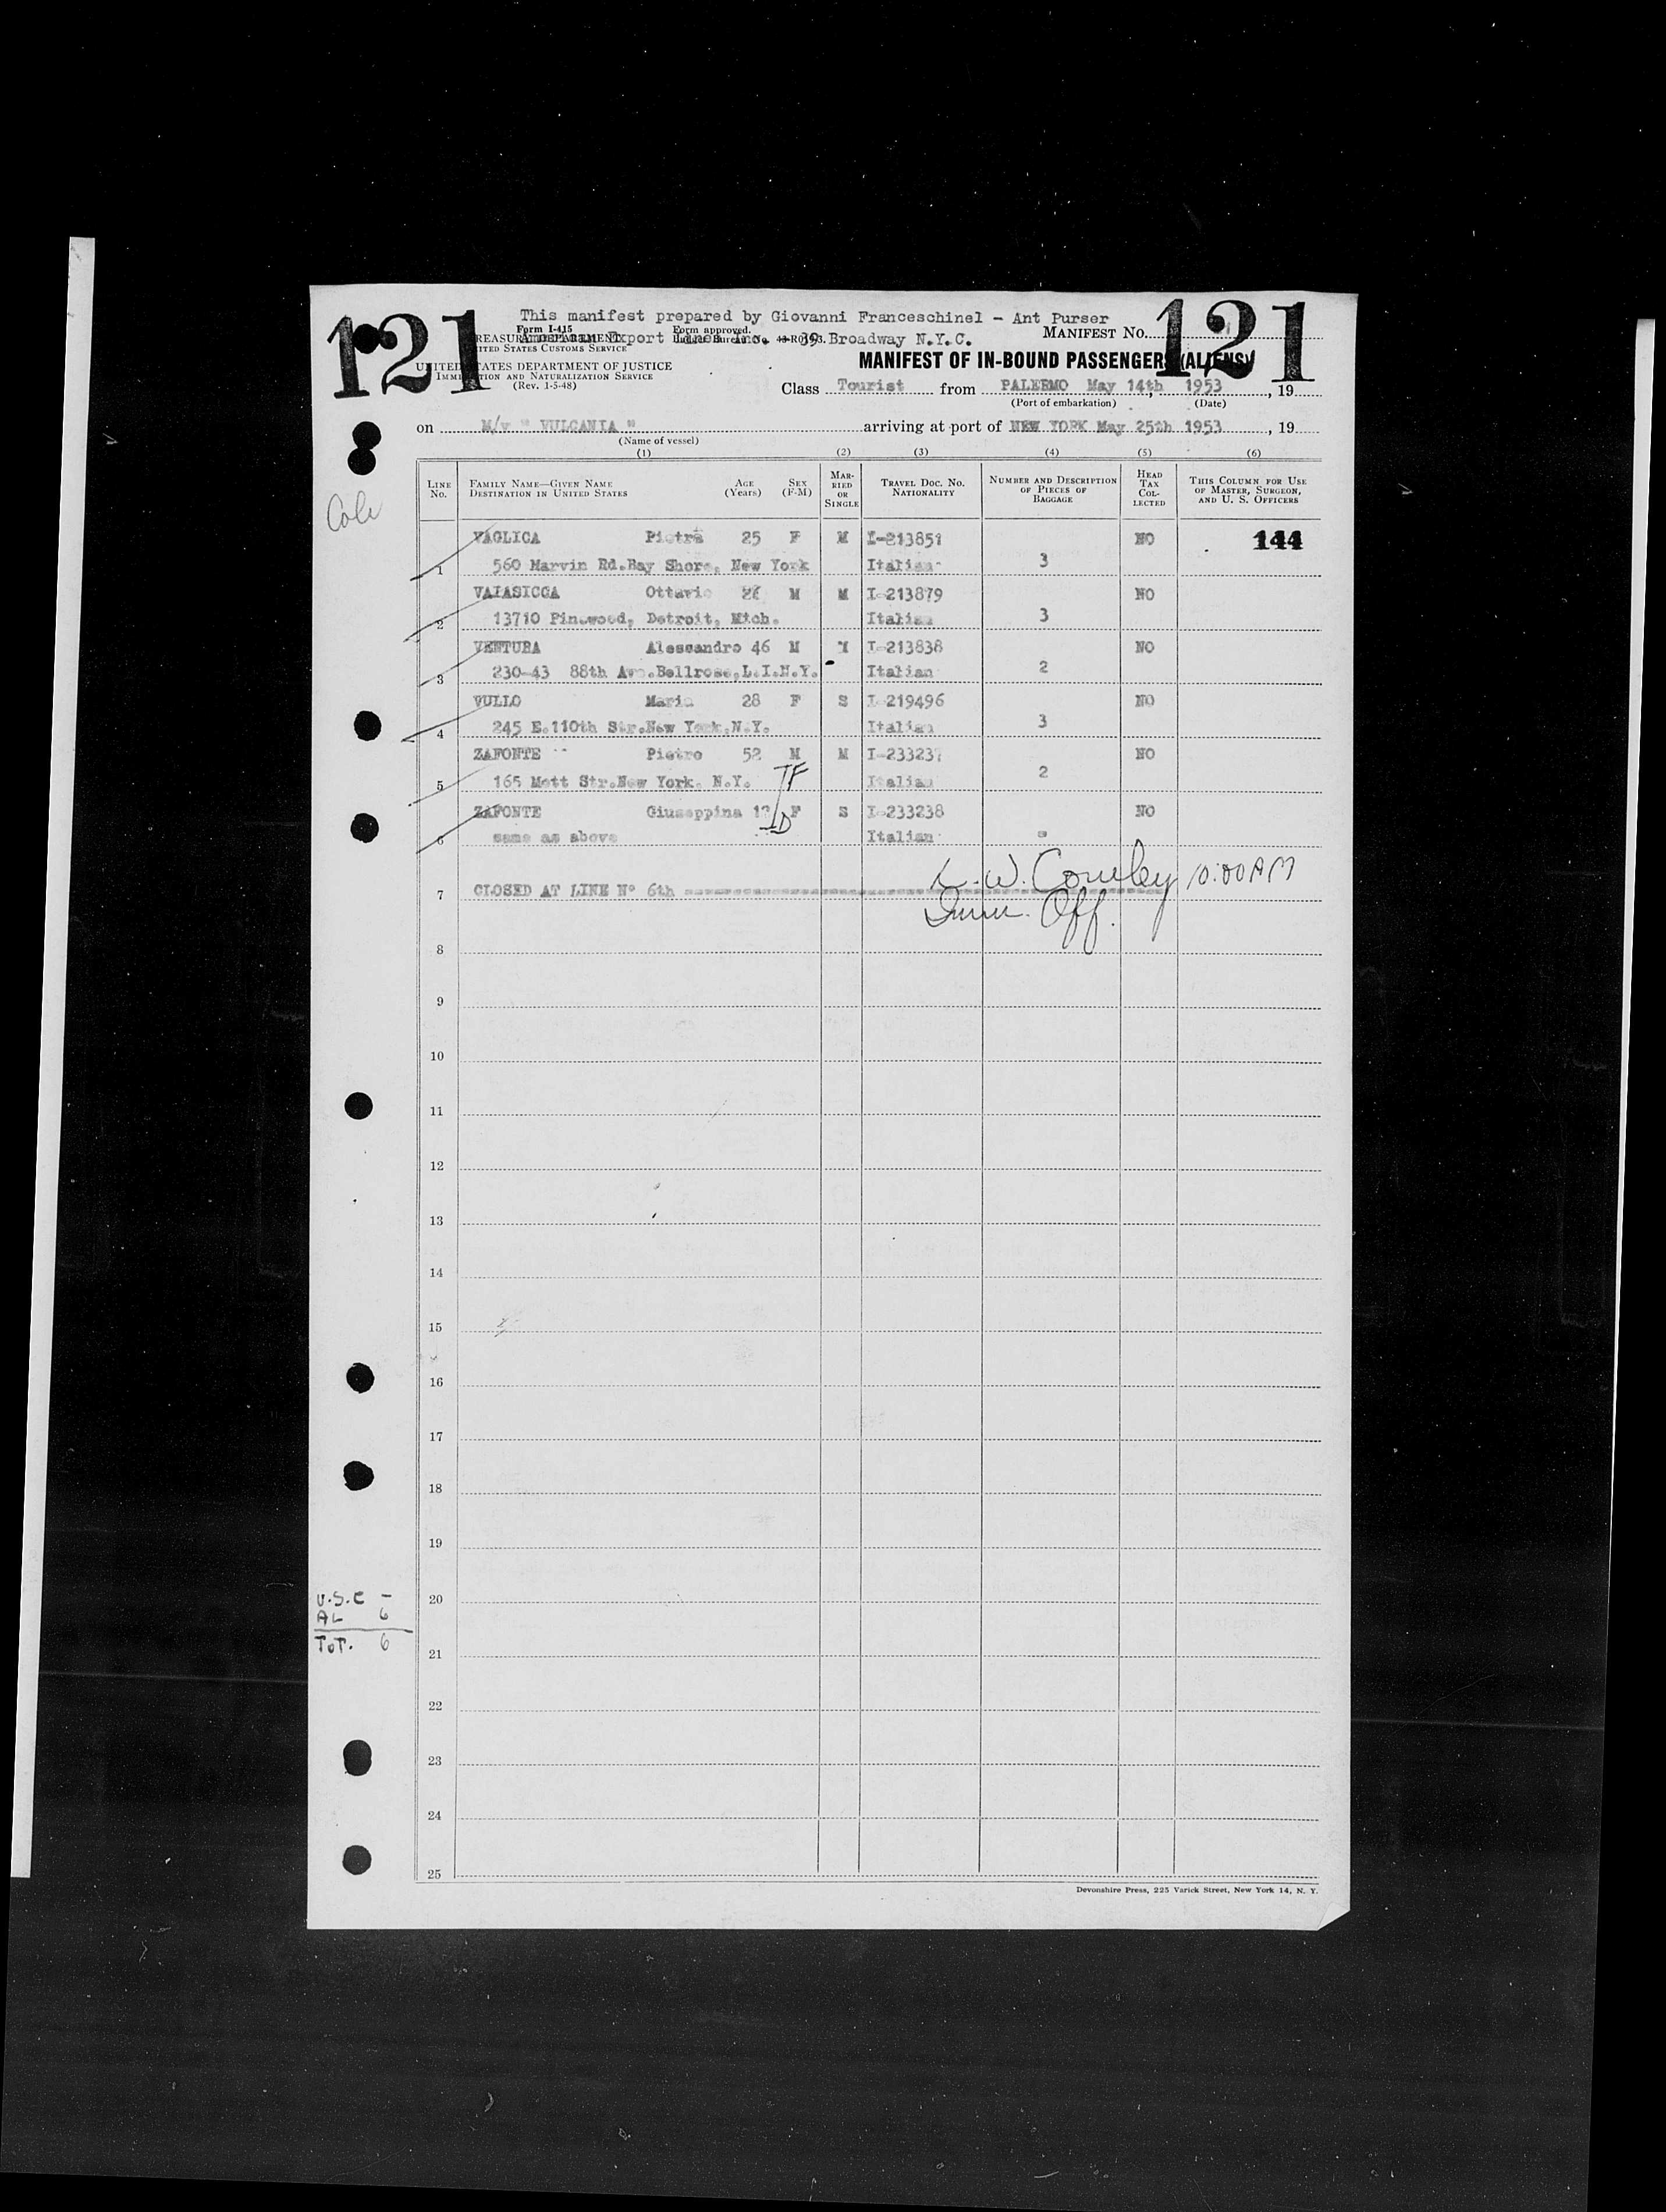 121 121
This manifest prepared by Giovanni Franceschinel - Ant Purser
Form I-415 Form approved. MANIFEST No.
TREASURY DEPARTMENT Export Lines Inc. 39 Broadway N.Y.C.
UNITED STATES CUSTOMS SERVICE
UNITED STATES DEPARTMENT OF JUSTICE MANIFEST OF IN-BOUND PASSENGERS (ALIENS)
IMMIGRATION AND NATURALIZATION SERVICE
(Rev. 1-5-48) Class Tourist from PALERMO May 14th, 1953, 19
(Port of embarkation) (Date)
on M/v " VULCANIA " arriving at port of NEW YORK May 25th 1953, 19
(Name of vessel)
(1) (2) (3) (4) (5) (6)
LINE No. FAMILY NAME—GIVEN NAME DESTINATION IN UNITED STATES AGE (Years) SEX (F-M) MARRIED OR SINGLE TRAVEL DOC. No. NATIONALITY NUMBER AND DESCRIPTION OF PIECES OF BAGGAGE HEAD TAX COLLECTED THIS COLUMN FOR USE OF MASTER, SURGEON, AND U. S. OFFICERS
VAGLICA Pietra 25 F M I-213851 NO 144
1 560 Marvin Rd.Bay Shore, New York Italian 3
Ottavio M M I-213879 NO
2 13710 Pinewood, Detroit, Mich. Italian 3
VENTURA Alessandro 46 M M I-213838 NO
3 230-43 88th Ave.Bellrose,L.I.N.Y. Italian 2
VULLO Maria 28 F S I-219496 NO
4 245 E.110th Str.New York,N.Y. Italian 3
ZAFONTE Pietro 52 M M I-233237 NO
5 165 Mott Str.New York. N.Y. Italian 2
ZAFONTE Giuseppina F S I-233238 NO
6 same as above Italian "
L. W. Conley 10:00 AM
7 CLOSED AT LINE N° 6th
Imm. Off.
8
9
10
11
12
13
14
15
16
17
18
19
U.S.C -
20
AL 6
TOT. 6
21
22
23
24
25
Devonshire Press, 225 Varick Street, New York 14, N. Y.